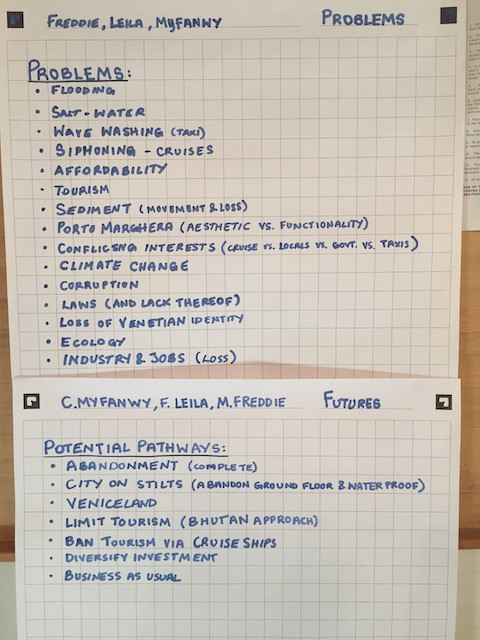 FREDDIE, LEILA, MYFANWY PROBLEMS
PROBLEMS:
• FLOODING
• SALT-WATER
• WAVE WASHING (TAXI)
• SIPHONING - CRUISES
• AFFORDABILITY
• TOURISM
• SEDIMENT (MOVEMENT & LOSS)
• PORTO MARGHERA (AESTHETIC VS. FUNCTIONALITY)
• CONFLICTING INTERESTS (CRUISE VS. LOCALS VS. GOVT. VS. TAXIS)
• CLIMATE CHANGE
• CORRUPTION
• LAWS (AND LACK THEREOF)
• LOSS OF VENETIAN IDENTITY
• ECOLOGY
• INDUSTRY & JOBS (LOSS)
C.MYFANWY, F. LEILA, M.FREDDIE FUTURES
POTENTIAL PATHWAYS:
• ABANDONMENT (COMPLETE)
• CITY ON STILTS (ABANDON GROUND FLOOR & WATERPROOF)
• VENICELAND
• LIMIT TOURISM (BHUTAN APPROACH)
• BAN TOURISM VIA CRUISE SHIPS
• DIVERSIFY INVESTMENT
• BUSINESS AS USUAL